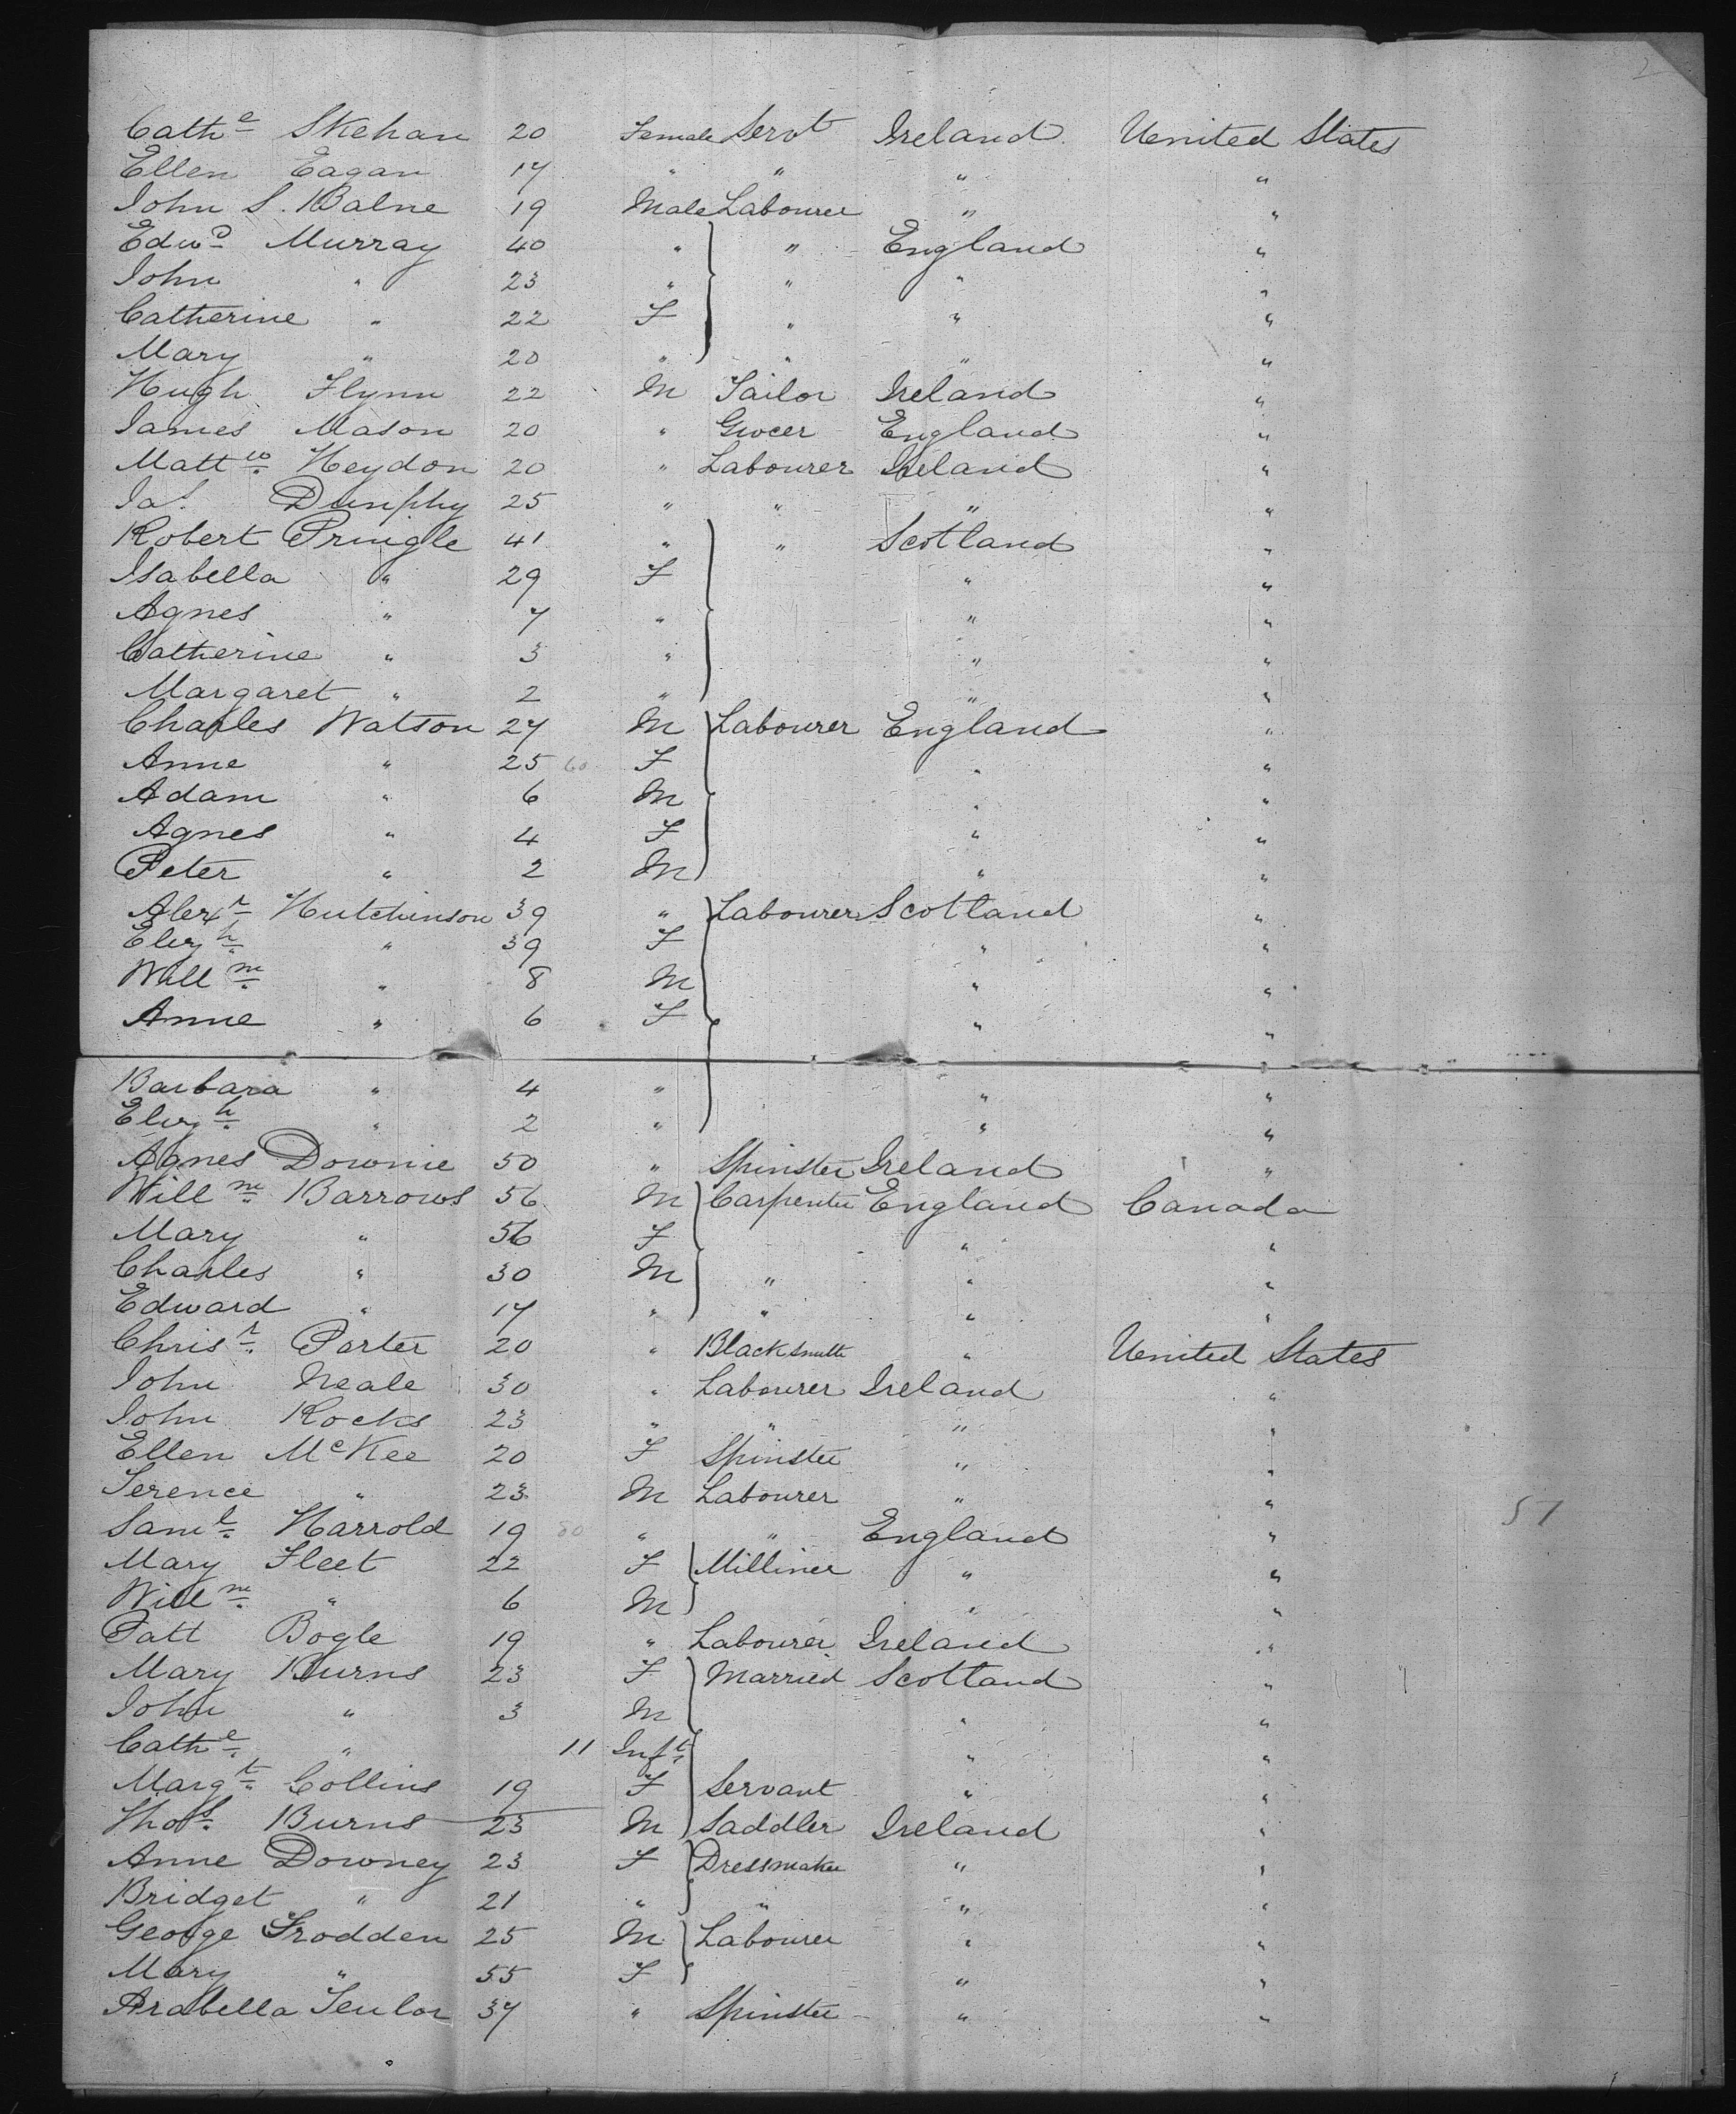 2
Cathe Skehan 20 Female Servt Ireland United States
Ellen Eagan 17 " " " "
John S. Balne 19 Male Labourer " "
Edwd Murray 40 " " England "
John " 23 " " " "
Catherine " 22 F " " "
Mary " 20 " " " "
Hugh Flynn 22 M Tailor Ireland "
James Mason 20 " Grocer England "
Mattw Heydon 20 " Labourer Ireland "
Jas Dunphy 25 " " " "
Robert Pringle 41 " " Scotland "
Isabella " 29 F " "
Agnes " 7 " " "
Catherine " 3 " " "
Margaret " 2 " " "
Charles Watson 27 M Labourer England "
Anne " 25 60 F " "
Adam " 6 M " "
Agnes " 4 F " "
Peter " 2 M " "
Alexr Hutchinson 39 " Labourer Scotland "
Elizh " 39 F " "
Willm " 8 M " "
Anne " 6 F " "
Barbara " 4 " " "
Elizh " 2 " " "
Agnes Downie 50 " Spinster Ireland "
Willm Barrows 56 M Carpenter England Canada
Mary " 56 F " "
Charles " 30 M " " "
Edward " 17 " " " "
Chrisr Porter 20 " Blacksmith " United States
John Neale 30 " Labourer Ireland "
John Rocks 23 " " " "
Ellen McKee 20 F Spinster " "
Terence " 23 M Labourer " "
51
Saml Harrold 19 80 " " England "
Mary Fleet 22 F Milliner " "
Willm " 6 M " "
Patt Bogle 19 " Labourer Ireland "
Mary Burns 23 F Married Scotland "
John " 3 M " "
Cathe " 11 Inft " "
Margt Collins 19 F Servant " "
Thos Burns 23 M Saddler Ireland "
Anne Downey 23 F Dressmaker " "
Bridget " 21 " " " "
George Frodden 25 M Labourer " "
Mary " 55 F " "
Arabella 37 " Spinster " "